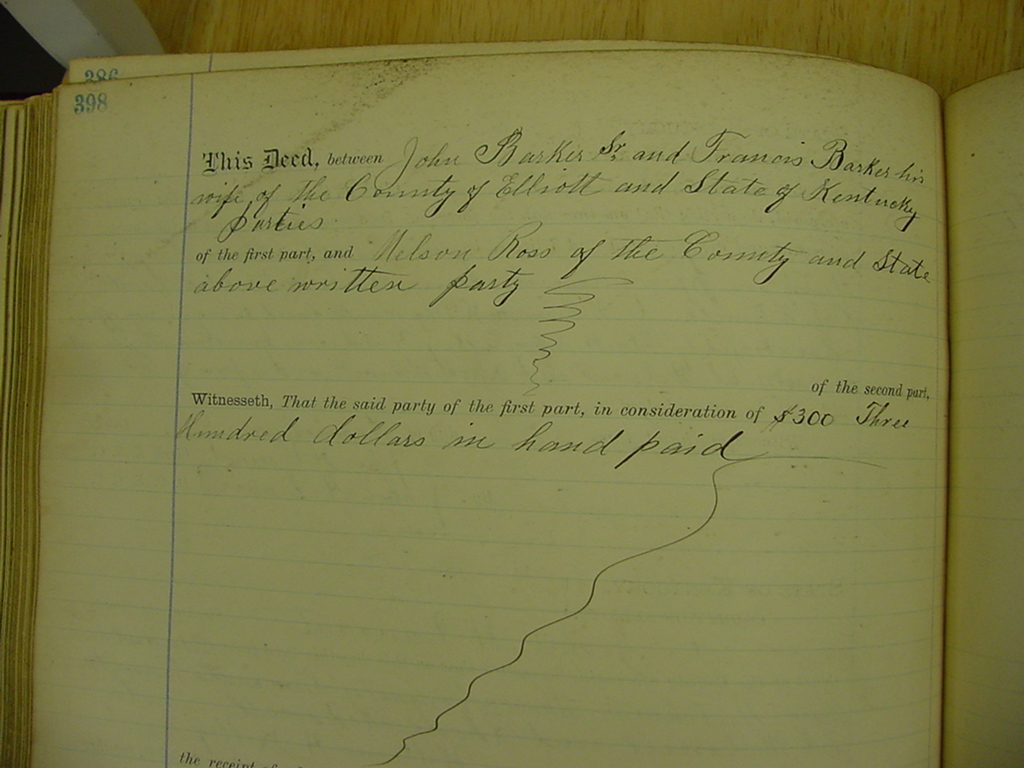 386
398
This Deed, between John Barker Sr. and Francis Barker his
wife of the County of Elliott and State of Kentucky
parties
of the first part, and Nelson Ross of the County and State
above written party
of the second part,
Witnesseth, That the said party of the first part, in consideration of $300 Three
Hundred dollars in hand paid
the receipt of